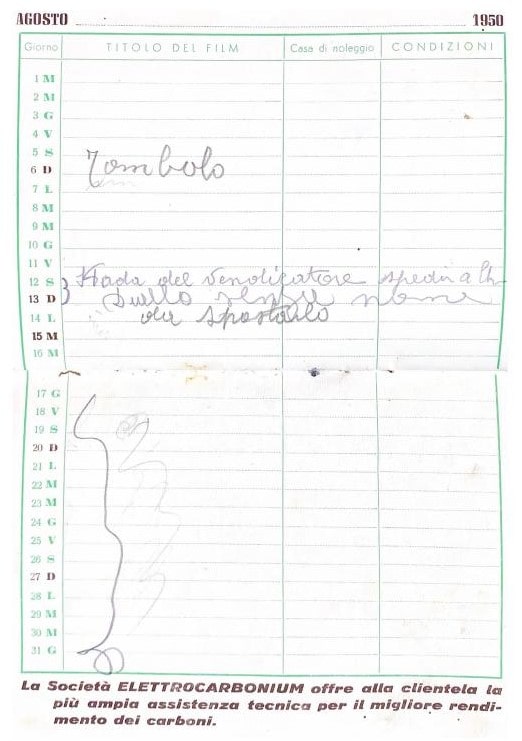 AGOSTO 1950
Giorno TITOLO DEL FILM Casa di noleggio CONDIZIONI
1 M
2 M
3 G
4 V
5 S
6 D Tombolo
7 L
8 M
9 M
10 G
11 V
12 S del vendicatore
13 D nome
14 L spostarlo
15 M
16 M
17 G
18 V
19 S
20 D
21 L
22 M
23 M
24 G
25 V
26 S
27 D
28 L
29 M
30 M
31 G
La Società ELETTROCARBONIUM offre alla clientela la
più ampia assistenza tecnica per il migliore rendi-
mento dei carboni.